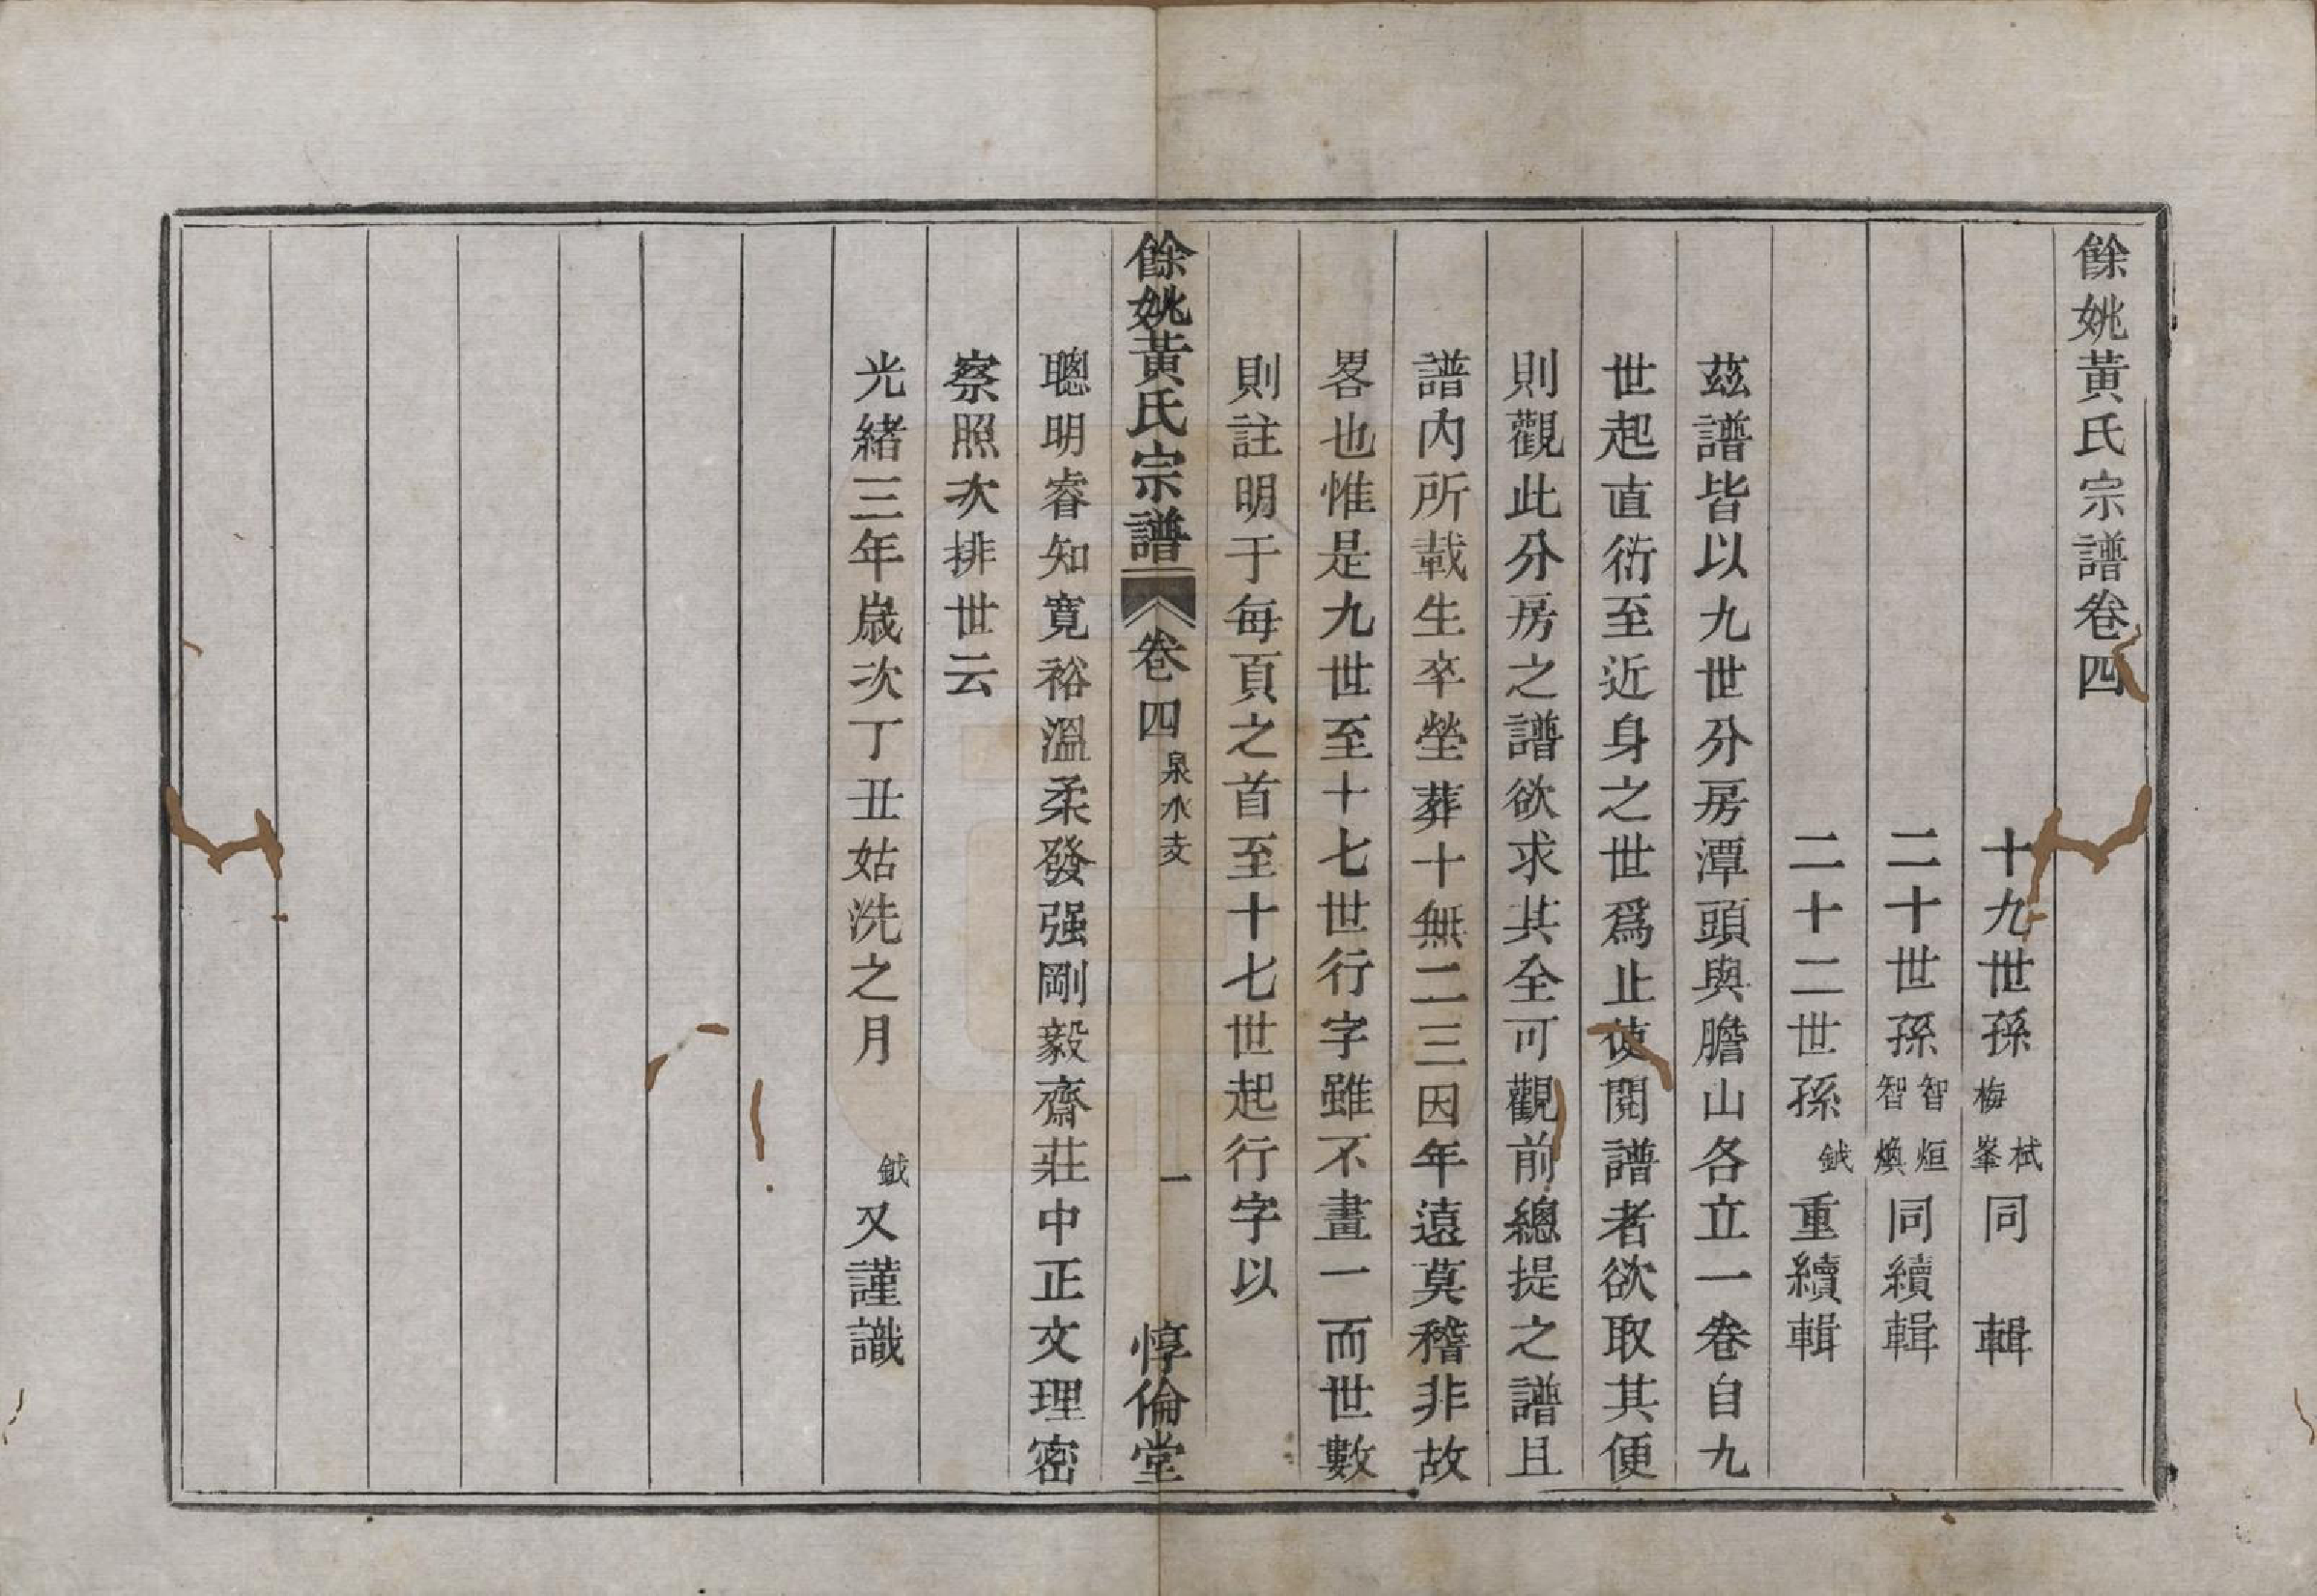 餘姚黃氏宗譜卷四
十九世孫 栻 梅峯 同 輯
二十世孫 智烜 智煥 同續輯
二十二世孫 鉞 重續輯
茲譜皆以九世分房潭頭與膽山各立一卷自九
世起直衍至近身之世爲止使閱譜者欲取其便
則觀此分房之譜欲求其全可觀前總提之譜且
譜內所載生卒塋葬十無二三因年遠莫稽非故
畧也惟是九世至十七世行字雖不畫一而世數
則註明于每頁之首至十七世起行字以
餘姚黃氏宗譜 卷四 泉水支 一 惇倫堂
聰明睿知寬裕溫柔發强剛毅齋莊中正文理密
察照次排世云
光緒三年歲次丁丑姑洗之月 鉞又謹識